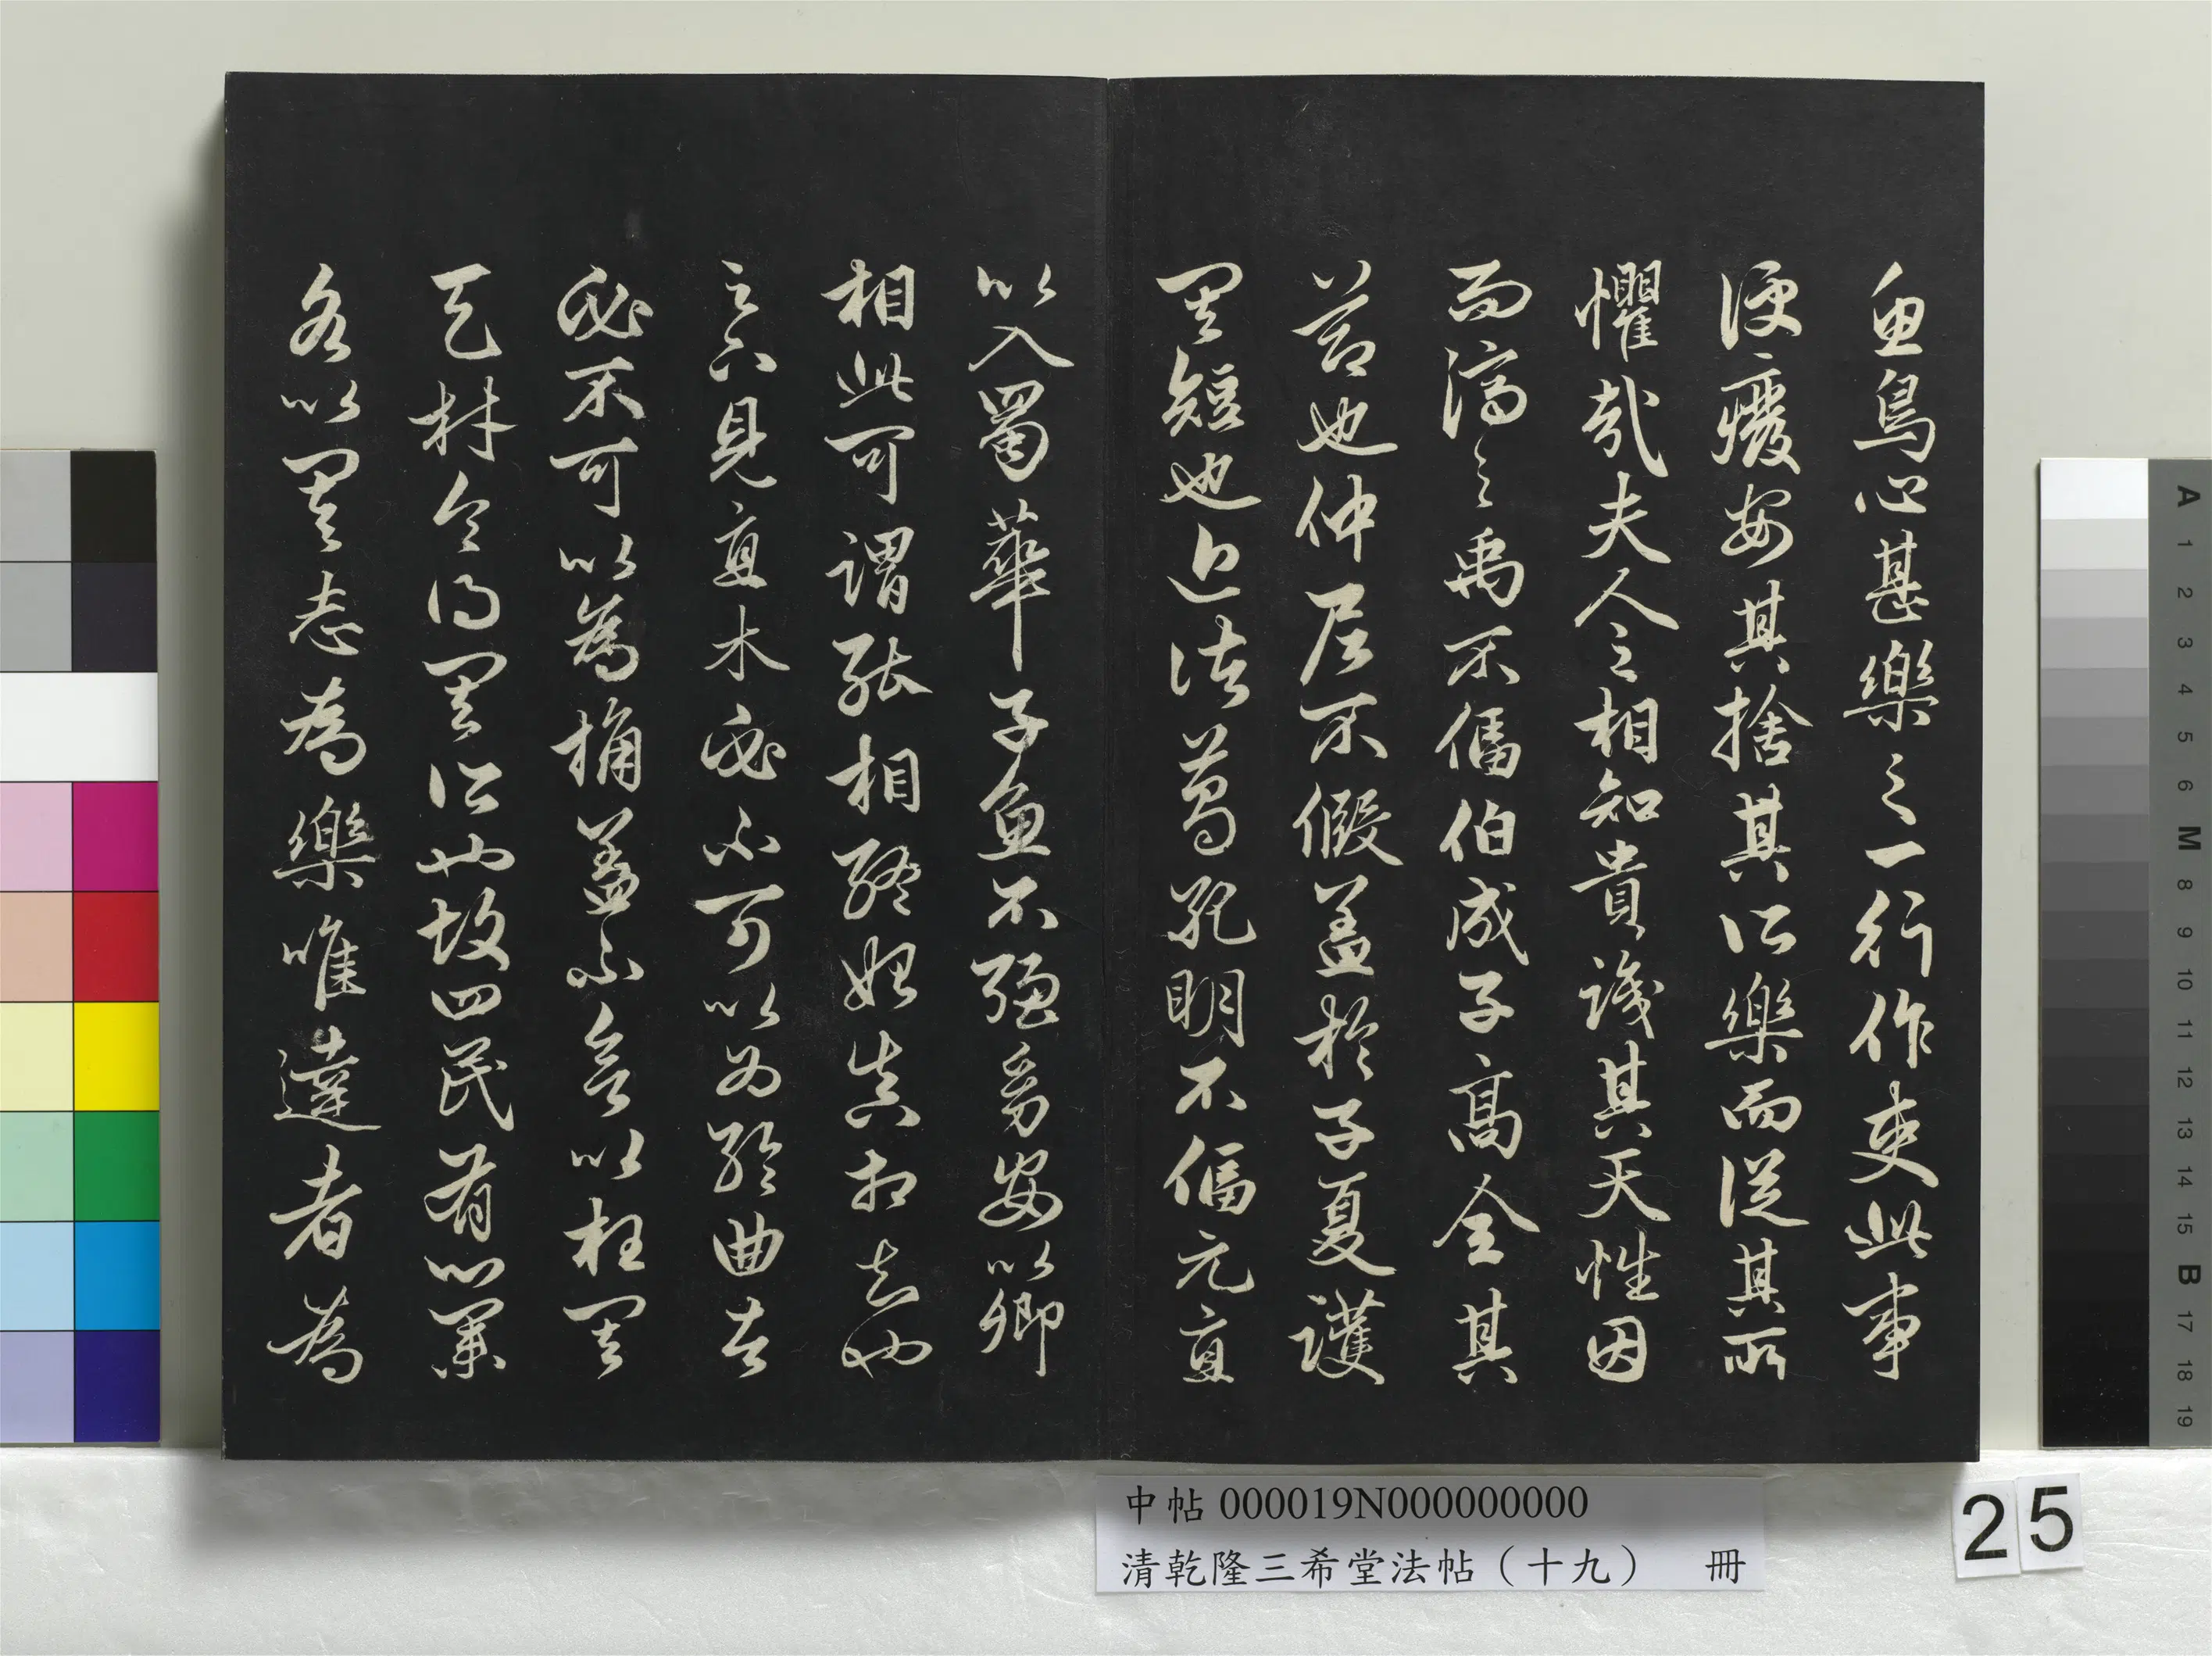 魚鳥心甚樂之一行作吏此事
便癈安其捨其所樂而從其所
懼哉夫人之相知貴識其天性因
而濟之禹不偪伯成子高全其
節也仲尼不假蓋於子夏護
其短也近諸葛孔明不偪元直
以入蜀華子魚不强幼安以卿
相此可謂能相終始真相知也
足下見直木必不可以為輪曲者
必不可以為桷蓋不欲以枉其
天材令得其所也故四民有以業
各以其志為樂唯達者為
中帖 000019N000000000
清乾隆三希堂法帖（十九） 冊
25
A 1 2 3 4 5 6 M 8 9 10 11 12 13 14 15 B 17 18 19